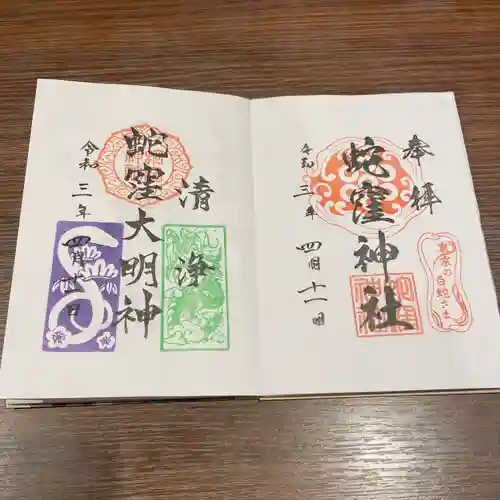 奉拝
蛇窪神社
令和三年
四月十一日
東京の
白蛇さま
清浄
蛇窪大明神
令和三年
四月十一日